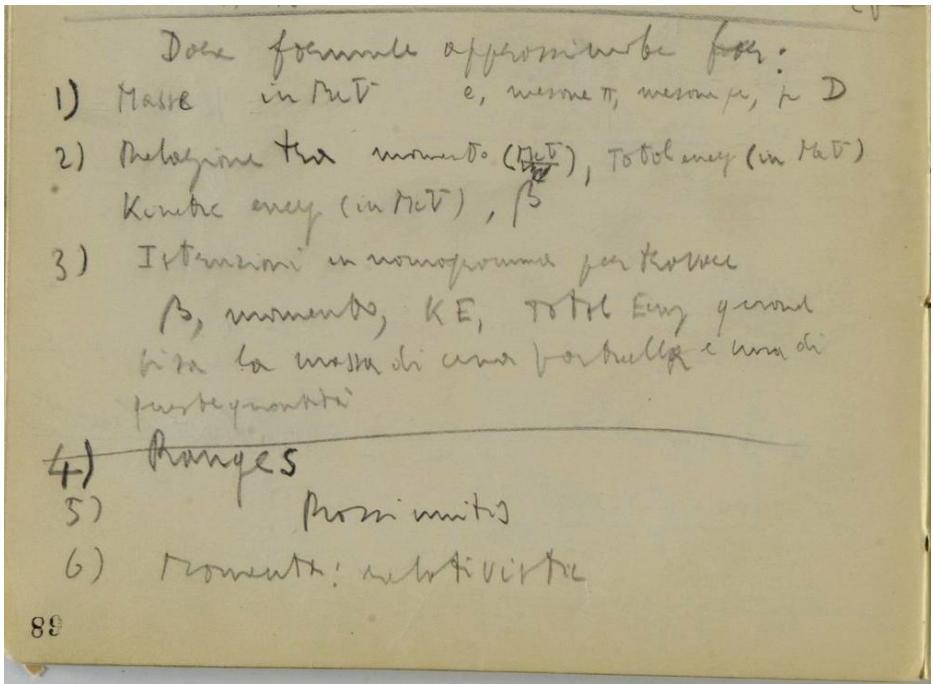 Dare formule approssimate per:
1) Masse in MeV e, mesone π, mesone μ, p D
2) Relazione tra momento (MeV), Total energ (in MeV)
Kinetic energ (in MeV), β
3) Istruzioni in nomogramma per trovare
β, momento, KE, Total Energ quando
la massa di una particella e una di
queste quantità
4) Ranges
5) Rossi units
6) Momenta: relativistic
89